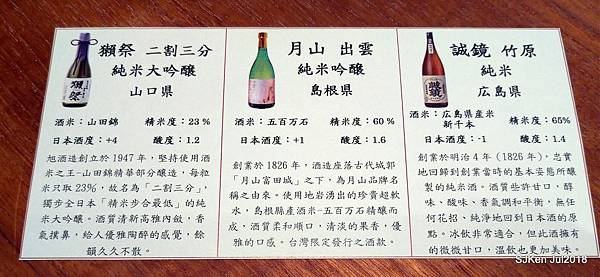 獺祭 二割三分
純米大吟釀
山口縣
酒米：山田錦 精米度：23%
日本酒度：+4 酸度：1.2
旭酒造創立於1947年，堅持使用酒
米之王-山田錦精華部分釀造，每粒
米只取23%，故名為「二割三分」，
獨步全日本「精米步合最低」的純
米大吟釀。酒質清新高雅內斂，香
氣撲鼻，給人優雅陶醉的感覺，餘
韻久久不散。
月山 出雲
純米吟釀
島根縣
酒米：五百萬石 精米度：60%
日本酒度：+1 酸度：1.6
創業於1826年，酒造座落古代城郭
「月山富田城」之下，為月山品牌名
稱之由來。使用地岩湧出的珍貴超軟
水，島根縣產酒米-五百萬石精釀而
成，酒質柔和順口，清淡的果香，優
雅的口感。台灣限定發行之酒款。
誠鏡 竹原
純米
広島縣
酒米：広島縣産米 新千本 精米度：65%
日本酒度：-1 酸度：1.4
創業於明治4年（1826年），忠實
地回歸到創業當時的基本姿態所釀
製的純米酒。酒質有些許甘口，醇
味、酸味、香氣調和平衡，無任
何花招，純淨地回到日本酒的原
點。冰飲非常適合，但此酒擁有
的微微甘口，溫飲也更加美味。
SJKen Jul2018